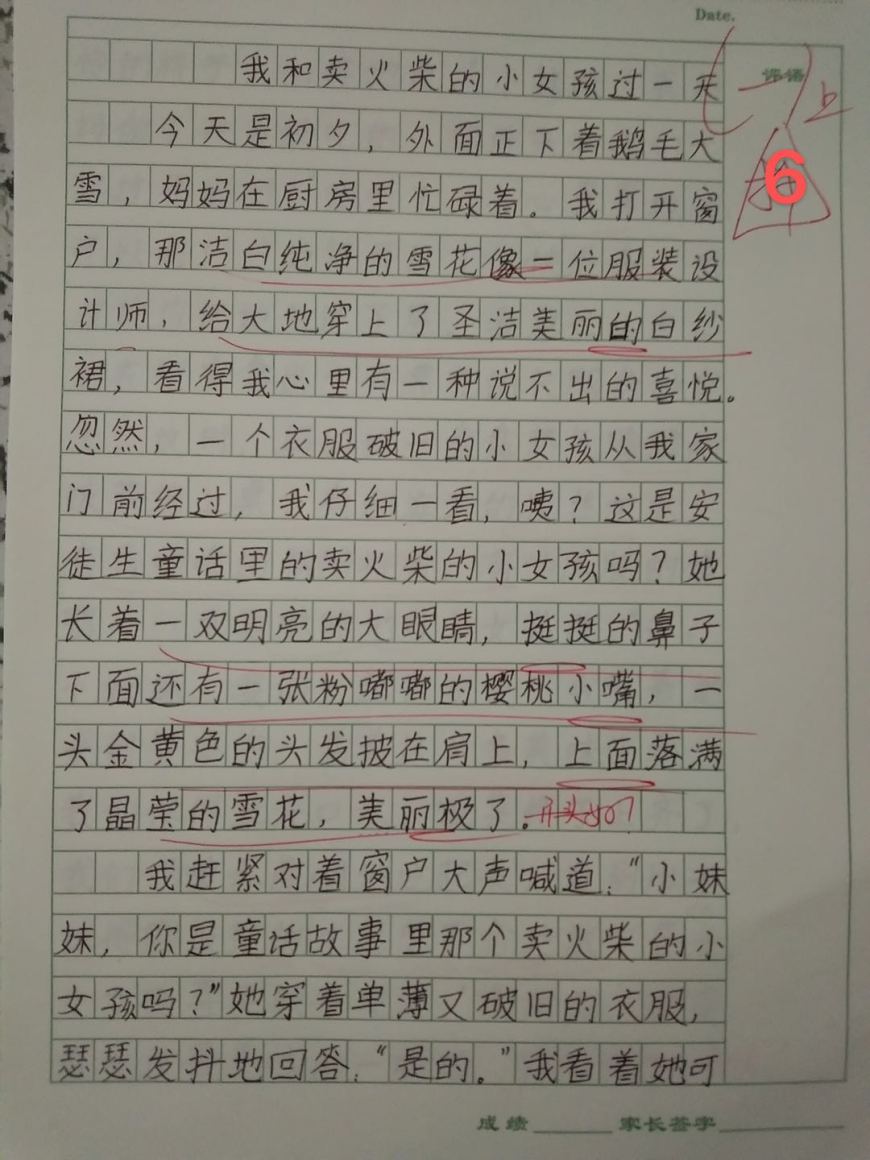 Date.
评语
我和卖火柴的小女孩过一天
上
6
今天是初夕，外面正下着鹅毛大
雪，妈妈在厨房里忙碌着。我打开窗
户，那洁白纯净的雪花像一位服装设
计师，给大地穿上了圣洁美丽的白纱
裙，看得我心里有一种说不出的喜悦。
忽然，一个衣服破旧的小女孩从我家
门前经过，我仔细一看，咦？这是安
徒生童话里的卖火柴的小女孩吗？她
长着一双明亮的大眼睛，挺挺的鼻子
下面还有一张粉嘟嘟的樱桃小嘴，一
头金黄色的头发披在肩上，上面落满
了晶莹的雪花，美丽极了。
我赶紧对着窗户大声喊道：“小妹
妹，你是童话故事里那个卖火柴的小
女孩吗？”她穿着单薄又破旧的衣服，
瑟瑟发抖地回答：“是的。”我看着她可
成绩 家长签字